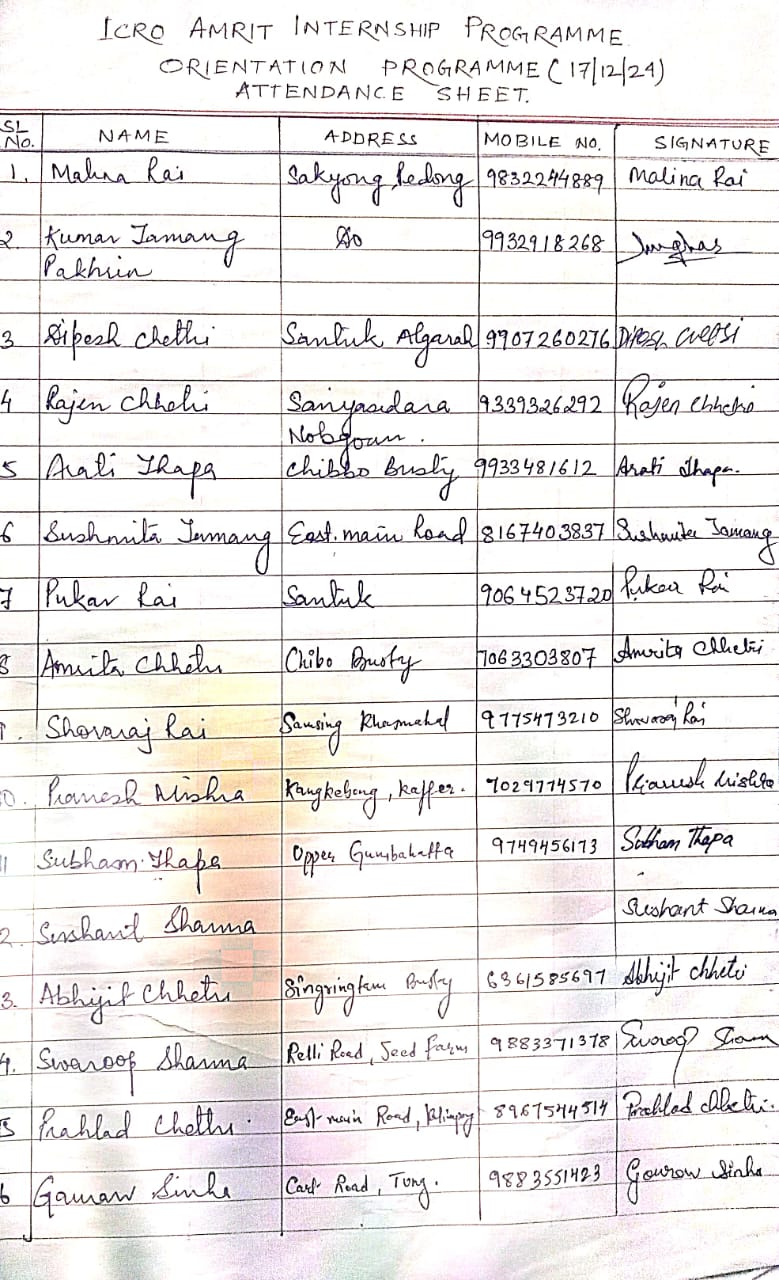 ICRO AMRIT INTERNSHIP PROGRAMME
ORIENTATION PROGRAMME (17/12/24)
ATTENDANCE SHEET.
SL No. NAME ADDRESS MOBILE NO. SIGNATURE
1. Malina Rai Sakyong Pedong 9832244889 Malina Rai
2. Kumar Tamang Do 9932918268
Pakhrin
3 Dipesh Chethi Santuk Algarah 9907260276 Dipesh
4 Rajen Chhetri Sanyasidara 9339326292 Rajen Chhetri
Nobgoan.
5 Arati Thapa Chibbo Busty 9933481612 Arati Thapa.
6 Sushmita Tamang East. main Road 8167403837 Sushmita Tamang
7 Pukar Rai Santuk 9064523720 Pukar Rai
8 Amrita Chhetri Chibo Busty 7063303807 Amrita Chhetri
9. Shovaraj Rai Samsing Khasmahal 9775473210 Shovaraj Rai
10. Pranesh Mishra Kangkebong, Kaffer. 7029774570 Pranesh Mishra
11 Subham Thapa Upper Gumbahatta 9749456173 Subham Thapa
2. Sushant Sharma Sushant Sharma
3. Abhijit Chhetri Singringtam Busty 6361585697 Abhijit chhetri
4. Swaroop Sharma Relli Road, Seed Farm 9883371378 Swaroop Sharma
5 Prahlad Chethri. East main Road, Klimpong 8967544514 Prahlad Chhetri.
6 Gaurav Sinha Cart Road, Tung. 9883551423 Gourow Sinha